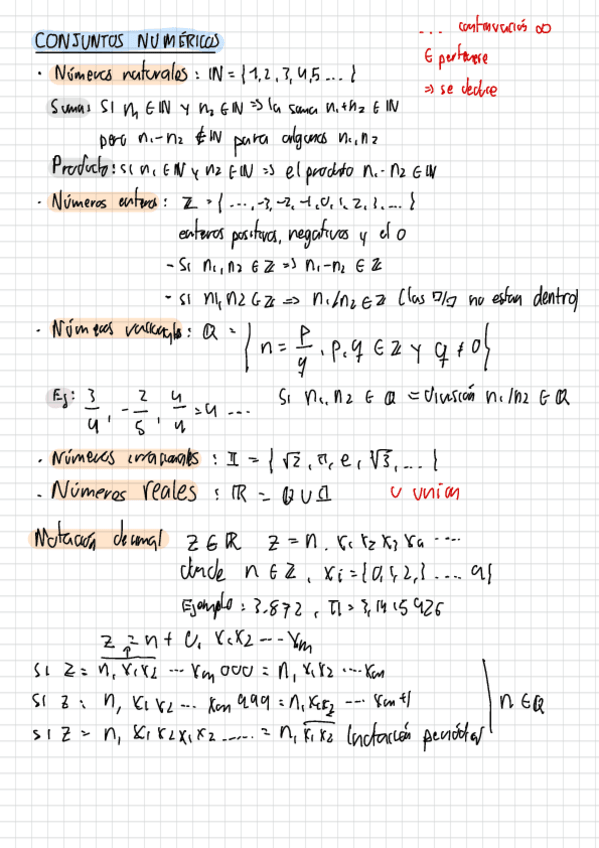 CONJUNTOS NUMÉRICOS
... continuación ∞
∈ pertenece
=> se deduce
· Números naturales: ℕ = {1,2,3,4,5...}
Suma: Si n₁ ∈ ℕ y n₂ ∈ ℕ => la suma n₁+n₂ ∈ ℕ
pero n₁-n₂ ∉ ℕ para algunos n₁,n₂
Producto: si n₁ ∈ ℕ y n₂ ∈ ℕ => el producto n₁·n₂ ∈ ℕ
· Números enteros: ℤ = {...,-3,-2,-1,0,1,2,3,...}
enteros positivos, negativos y el 0
- Si n₁,n₂ ∈ ℤ => n₁-n₂ ∈ ℤ
- si n₁,n₂ ∈ ℤ => n₁/n₂ ∈ ℤ (las □/□ no estan dentro)
· Números racionales: ℚ = {n = p/q, p,q ∈ ℤ y q ≠ 0}
Ej: 3/4, -2/5, 4/4 = 4 ...
Si n₁,n₂ ∈ ℚ = división n₁/n₂ ∈ ℚ
· Números irracionales: 𝕀 = {√2, π, e, ∛3,...}
· Números reales: ℝ = ℚ ∪ 𝕀
∪ unión
Notación decimal z ∈ ℝ z = n. x₁ x₂ x₃ x₄ ....
donde n ∈ ℤ, xi = {0,1,2,3 .... 9}
Ejemplo: 3.872, π = 3,1415926
z = n + 0, x₁x₂ --- xm
si z = n, x₁x₂ --- xm 000 = n, x₁x₂ --- xm
si z = n, x₁x₂ --- xm 999 = n, x₁x₂ --- xm+1
n ∈ ℚ
si z = n, x₁x₂x₁x₂ ..... = n, x₁x₂ (notación periódica)